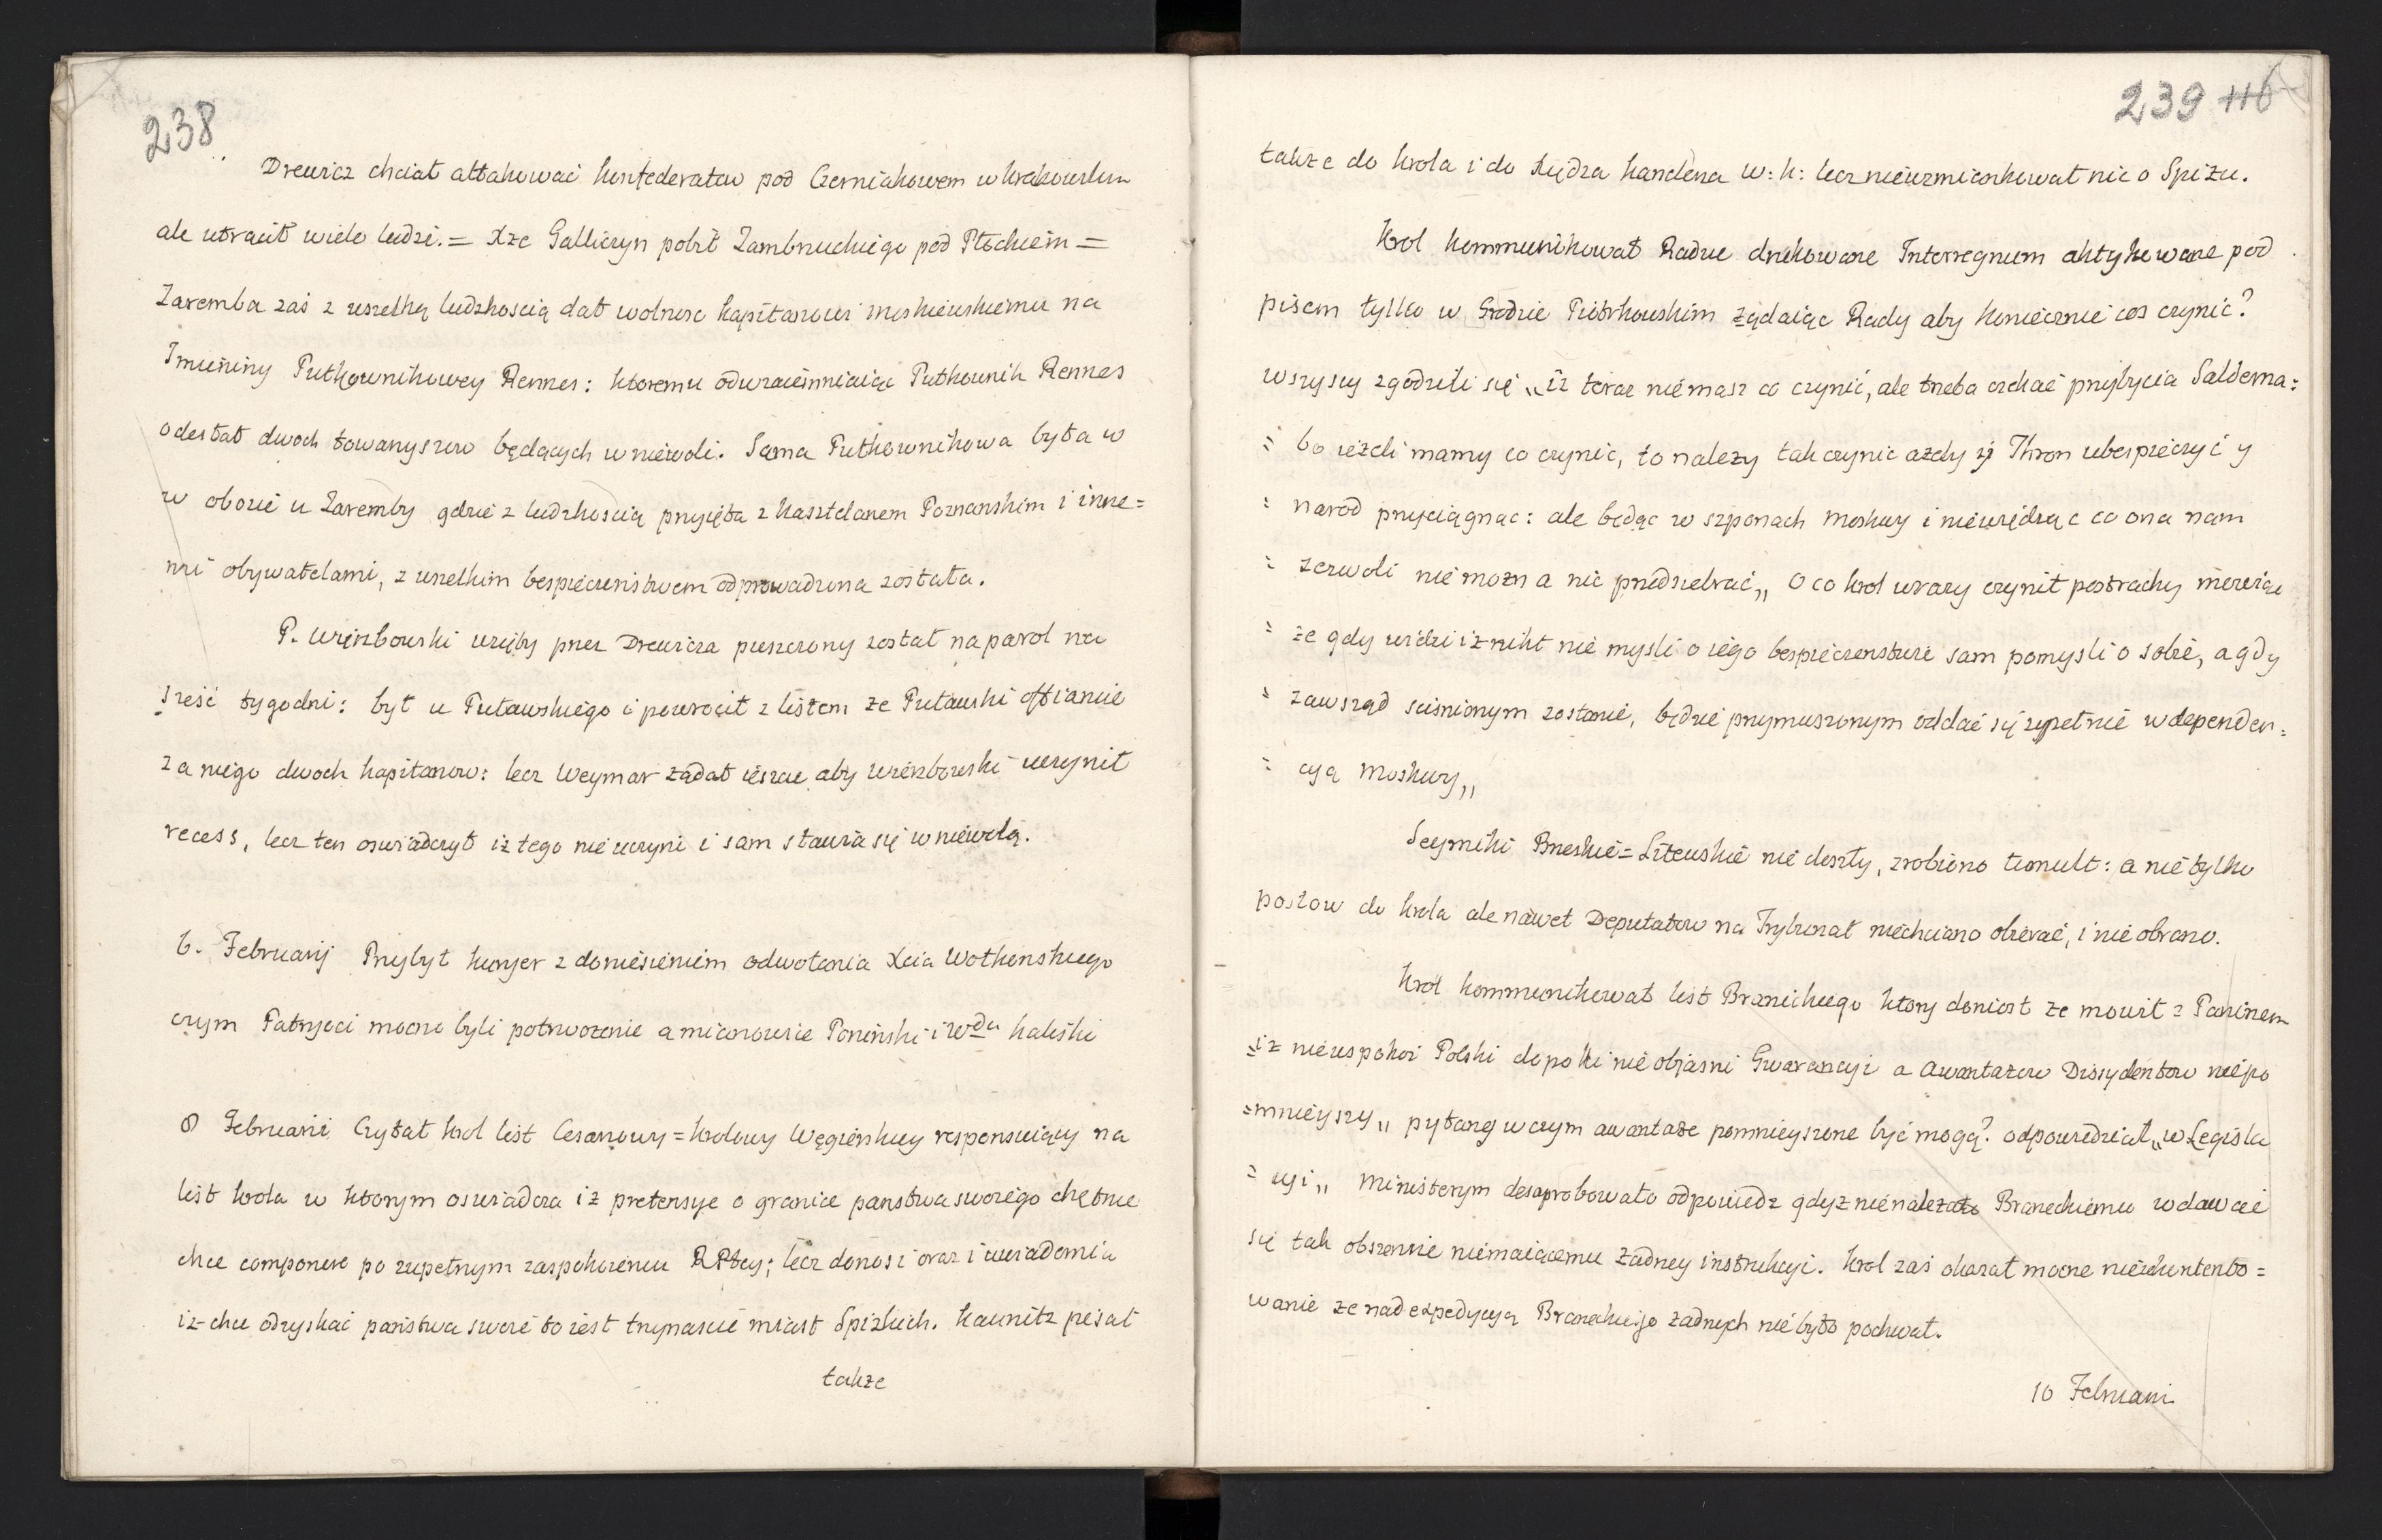 238
Drewicz chciał attakować konfederatow pod Czerniakowem w krakowskim
ale utracił wiele ludzi. = Xże Galliczyn pobił Zambrzuckiego pod Płockiem =
Zaremba zaś z wszelką ludzkoscią dał wolnosc kapitanowi moskiewskiemu na
Imieniny Pułkownikowey Rennes: ktoremu odwzaiemniaiąc Pułkownik Rennes
odesłał dwoch towarzyszow będących w niewoli. Sama Pułkownikowa była w
w obozie u Zaremby gdzie z ludzkoscią przyięta z kasztelanem Poznanskim i inne=
mi obywatelami, z wszelkim bespieczenstwem odprowadzona została.
P. Wierzbowski wzięty przez Drewicza puszczony został na parol na
szesć tygodni: był u Puławskiego i powrocił z listem ze Puławski offiaruie
za niego dwoch kapitanow: lecz Weymar żądał ieszcze aby wierzbowski uczynił
recess, lecz ten oswiadczył iż tego nie uczyni i sam stawia się w niewolą.
6. Februarij Przybył kuryer z doniesieniem odwołania Xcia Wołkonskiego
czym Patryoci mocno byli potrwozenie a mianowicie Poninski i Wda kaliski
8 Februarii Czytał krol list Cesarzowy = krolowy Węgierskiey responsuiący na
list krola w ktorym oswiadcza iż pretensye o granice panstwa swoiego chętnie
chce componere po zupełnym zaspokoieniu RPltey; lecz donosi oraz i uwiadomia
iż chce odzyskać państwa swoie to iest trzynascie miast Spizkich. kaunitz pisał
także
239 116
także do krola i do Xiędza kanclerza w: k: lecz niewzmiankował nic o Spiżu.
Krol kommunikował Radzie drukowane Interregnum aktykowane pod
pisem tylko w Grodzie Piotrkowskim żądaiąc Rady aby koniecznie cos czynic?
wszyscy zgodzili się „iż teraz niemasz co czynić, ale trzeba czekać przybycia Salderna=
= bo ieżeli mamy co czynic, to nalezy tak czynic azeby y Thron ubespieczyć y
= narod przyciągnąc: ale będąc w szponach Moskwy i niewiedząc co ona nam
= zezwoli nie mozna nic przedsiebrać„ O co krol urazy czynił postrachy mowiąc
= że gdy widzi iż nikt nie mysli o iego bespieczenstwie sam pomysli o sobie, a gdy
= zawsząd scisnionym zostanie, będzie przymuszonym oddać się zupełnie w dependen=
= cyą Moskwy„
Seymiki Brzeskie = Litewskie nie doszły, zrobiono tumult: a nie tylko
posłow do krola ale nawet Deputatow na Trybunał niechciano obierać, i nie obrano.
Krol kommunikował list Branickiego ktory doniosł ze mowił z Paninem
=iż nieuspokoi Polski dopoki nie objasni Gwarancyi a Awantażow Dissydentow nie po
=mnieyszy„ pytany w czym awantaże pomnieyszone być mogą? odpowiedział „w Legisla
= cyi„ Ministerym desaprobowało odpowiedz gdyż nienalezało Braneckiemu wdawać
się tak obszernie niemaiącemu żadney instrukcyi. Krol zaś okazał mocne nieukontento=
wanie ze nad expedycyą Branickiego żadnych nie było pochwał.
10 Februarii